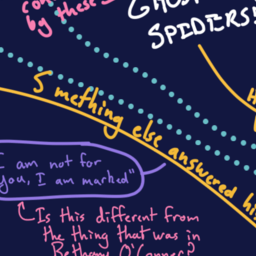 by these
SPIDERS!
S mething else answered hi
am not for
you, I am marked"
Is this different from
the thing that was in
Bethany O'Connor?